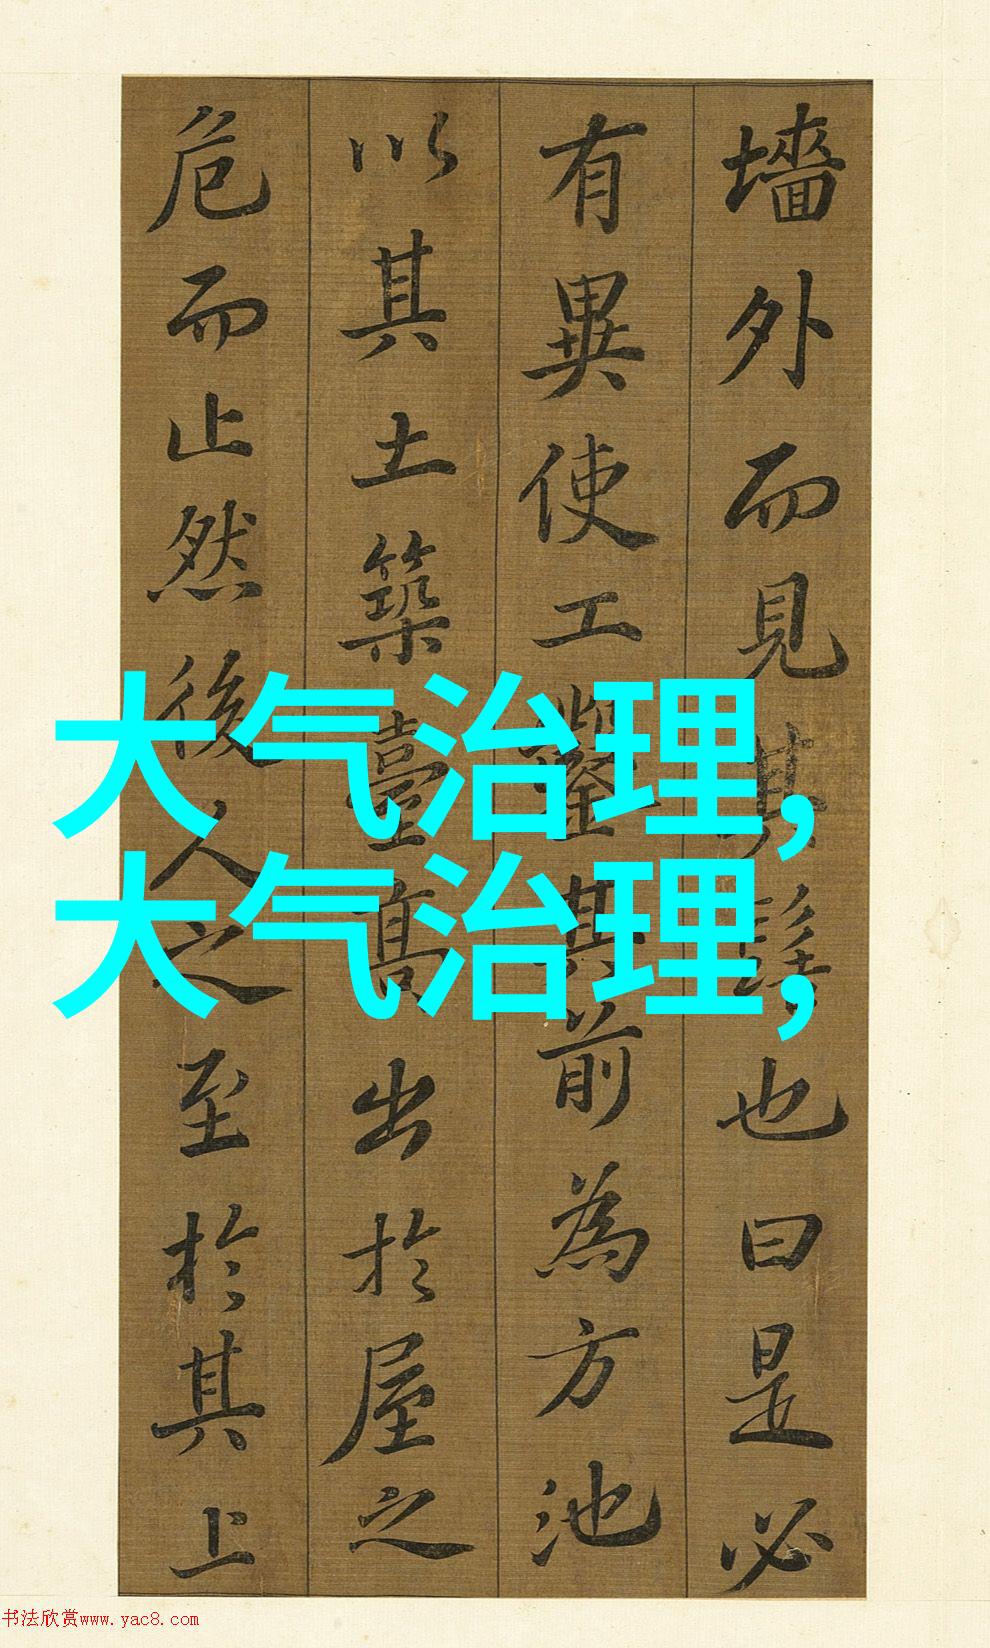 墻外而見其髻也曰是必
有異使工鑿其前為方池
以其土築臺高出於屋之
危而止然後人之至於其上
大气治理,
大气治理,
书法欣赏www.yac8.com